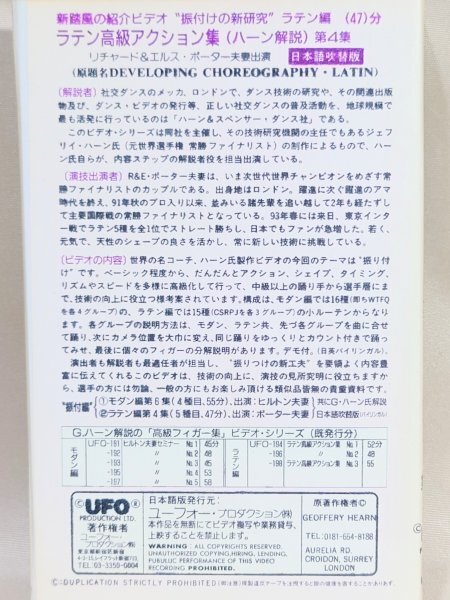 新踏風の紹介ビデオ "振付けの新研究" ラテン編 (47)分
ラテン高級アクション集 (ハーン解説) 第4集
リチャード&エルス・ポーター夫妻出演 日本語吹替版
(原題名DEVELOPING CHOREOGRAPHY・LATIN)
〔解説者〕社交ダンスのメッカ、ロンドンで、ダンス技術の研究や、その関連出版
物及び、ダンス・ビデオの発行等、正しい社交ダンスの普及活動を、地球規模で
最も活発に行っているのは「ハーン&スペンサー・ダンス社」である。
このビデオ・シリーズは同社を主催し、その技術研究機関の主任でもあるジェフ
リイ・ハーン氏(元世界選手権 常勝ファイナリスト)の制作によるもので、ハー
ン氏自らが、内容ステップの解説者役を担当出演している。
〔演技出演者〕R&E・ポーター夫妻は、いま次世代世界チャンピオンをめざす常
勝ファイナリストのカップルである。出身地はロンドン。躍進に次ぐ躍進のアマ
時代を終え、91年秋のプロ入り以来、並みいる諸先輩を追い越して2年も経たずし
て主要国際戦の常勝ファイナリストとなっている。93年春には来日、東京インタ
ー戦でラテン5種を全1位でストレート勝ちし、日本でもファンが急増した。若く、
元気で、天性のシェープの良さを活かし、常に新しい技術に挑戦している。
〔ビデオの内容〕世界の名コーチ、ハーン氏製作ビデオの今回のテーマは"振り付
け"です。ベーシック程度から、だんだんとアクション、シェイプ、タイミング、
リズムやスピードを多様に高級化して行って、中級以上の踊り手から選手層にま
で、技術の向上に役立つ様考案されています。構成は、モダン編では16種(即ちWTFQ
を各4グループ)の、ラテン編では15種(CSRPJを各3グループ)の小ルーテンからなりま
す。各グループの説明方法は、モダン、ラテン共、先づ各グループを曲に合せ
て踊り、次にカメラ位置を大巾に変え、同じ踊りをゆっくりとカウント付きで踊っ
てみせ、最後に個々のフィガーの分解説明があります。デモ付。(日英バイリンガル)
演出者も解説者も最適任者が担当し、"振りつけの新工夫"を要領よく内容豊
富に伝えてくれるこのビデオは、技術の向上に、演技の見所究明に役立ちますか
ら、選手の方には勿論、一般の方にもお楽しみ頂ける類似品皆無の貴重資料です。
"振付編" ①モダン編第6集(4種目、55分)、出演:ヒルトン夫妻 共にG・ハーン氏解説
②ラテン編第4集(5種目、47分)、出演:ポーター夫妻 日本語吹替版(バイリンガル)
G.ハーン解説の「高級フィガー集」ビデオ・シリーズ (既発行分)
モダン編 UFO-191 ヒルトン夫妻セミナー №1 45分 ラテン編 UFO-194 ラテン高級アクション集 №1 52分
-192 〃 №2 48 -196 ラテン高級アクション集 №2 48
-193 〃 №3 53 -198 ラテン高級アクション集 №3 55
-195 〃 №4 45
-197 〃 №5 58
© UFO
PRODUCTION LTD.
著作権者
ユーフォー・プロダクション(株)
東京都新宿区新宿
TEL 03-3350-0804
日本語版発行元:
ユーフォー・プロダクション(株)
本作品を無断にてビデオ複写や業務貸与、
上映することを禁じます。
WARNING: ALL RIGHTS RESERVED.
UNAUTHORIZED COPYING,HIRING, LENDING,
PUBLILIC PERFORMANCE OF THIS VIDEO
RECORDING PROHIBITED.
原著作権者 ©
GEOFFERY HEARN
TEL:0181-654-8188
AURELIA RD.
CROIDON, SURREY
LONDON
©:DUPLICATION STRICTLY PROHIBITED